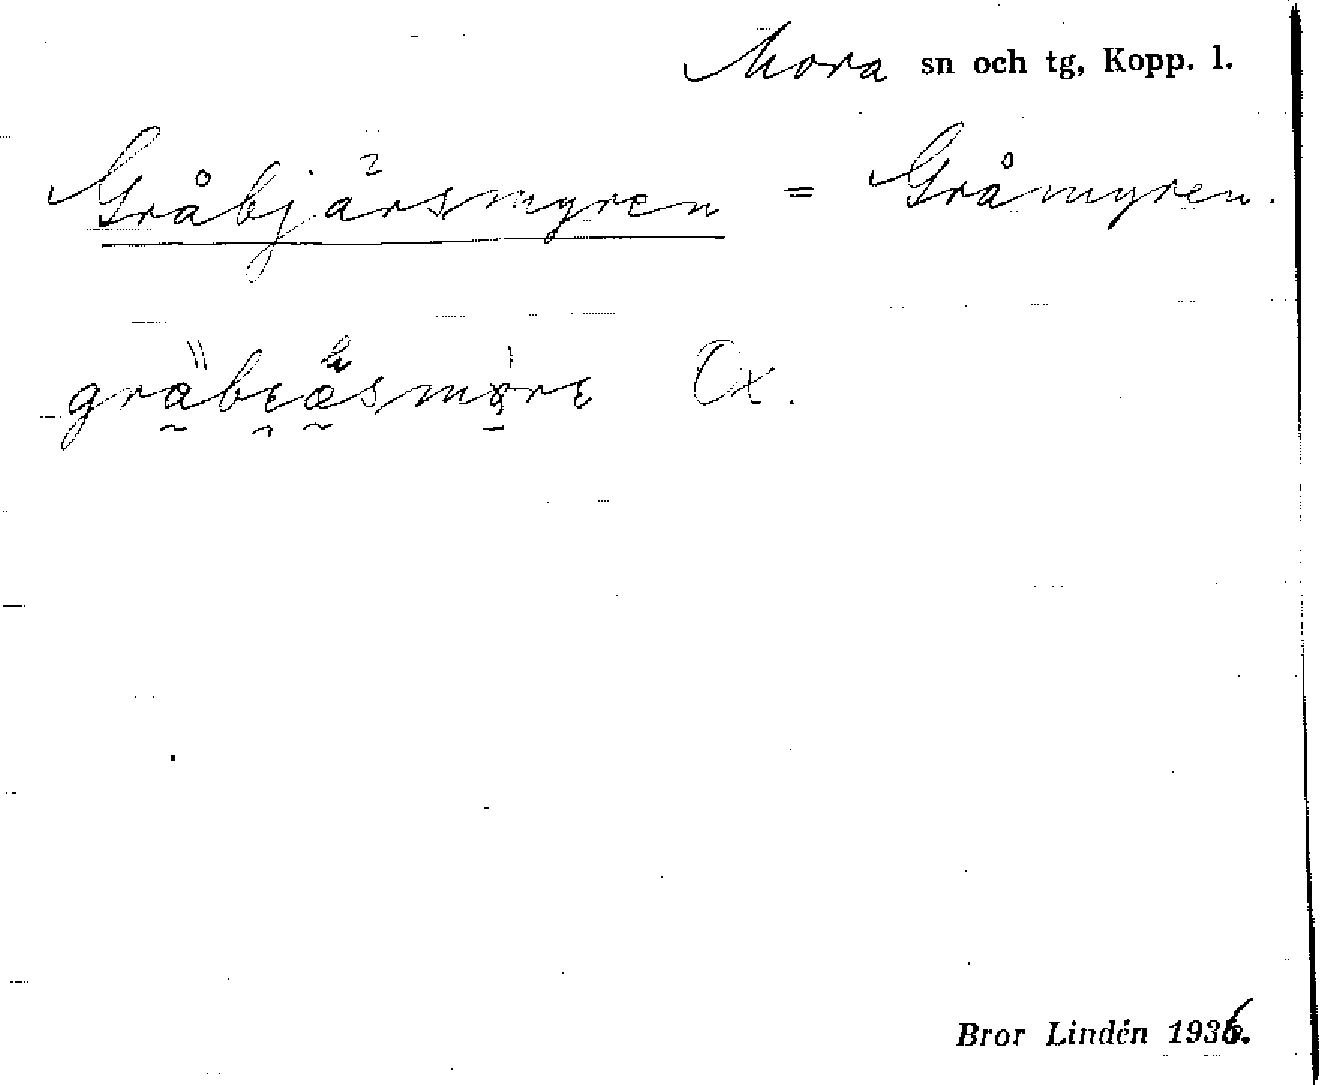 Mora sn och tg, Kopp. l.
Gråbjärsmyren = Gråmyren.
Ox.
Bror Lindén 1936.